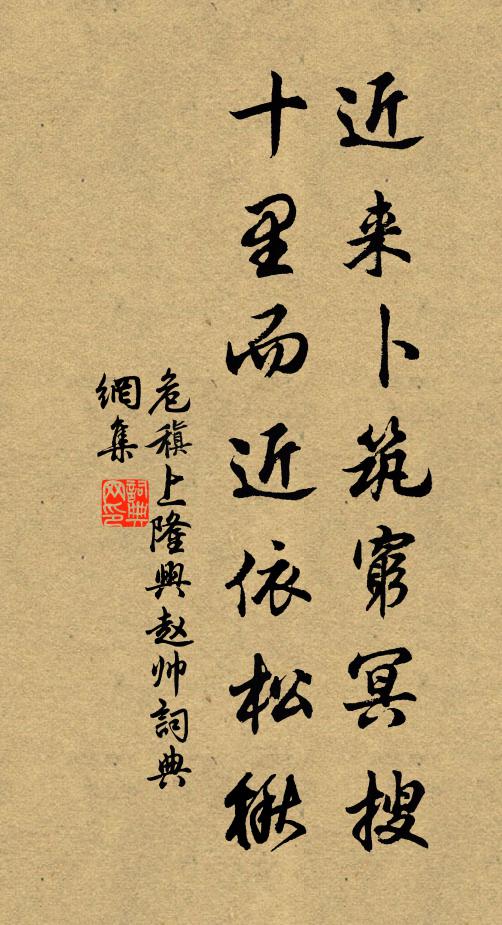 近来卜筑窮冥搜
十里而近依松楸
危稹上隆興赵帅詞典
網集
詞典
网印